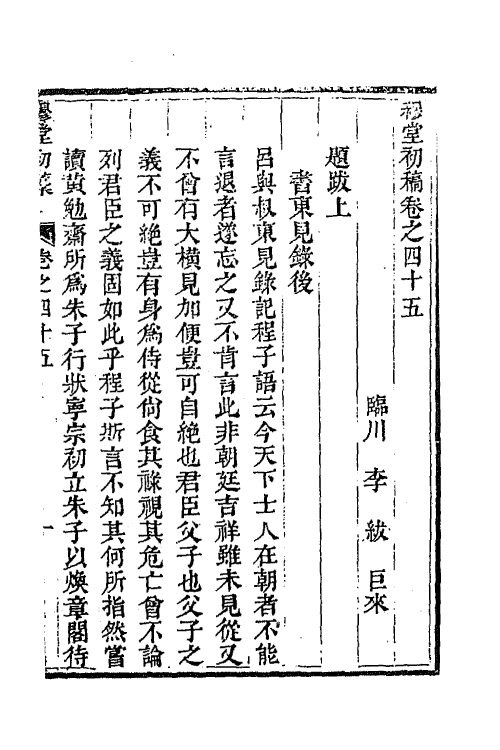 穆堂初稿卷之四十五
臨川 李 紱 巨來
題跋上
書東見錄後
呂與叔東見錄記程子語云今天下士人在朝者不能
言退者遂忘之又不肯言此非朝廷吉祥雖未見從又
不曾有大橫見加便豈可自絶也君臣父子也父子之
義不可絶豈有身爲侍從尙食其祿視其危亡曾不論
列君臣之義固如此乎程子斯言不知其何所指然嘗
讀黃勉齋所爲朱子行狀寧宗初立朱子以煥章閣待
穆堂初稿 卷之四十五 一